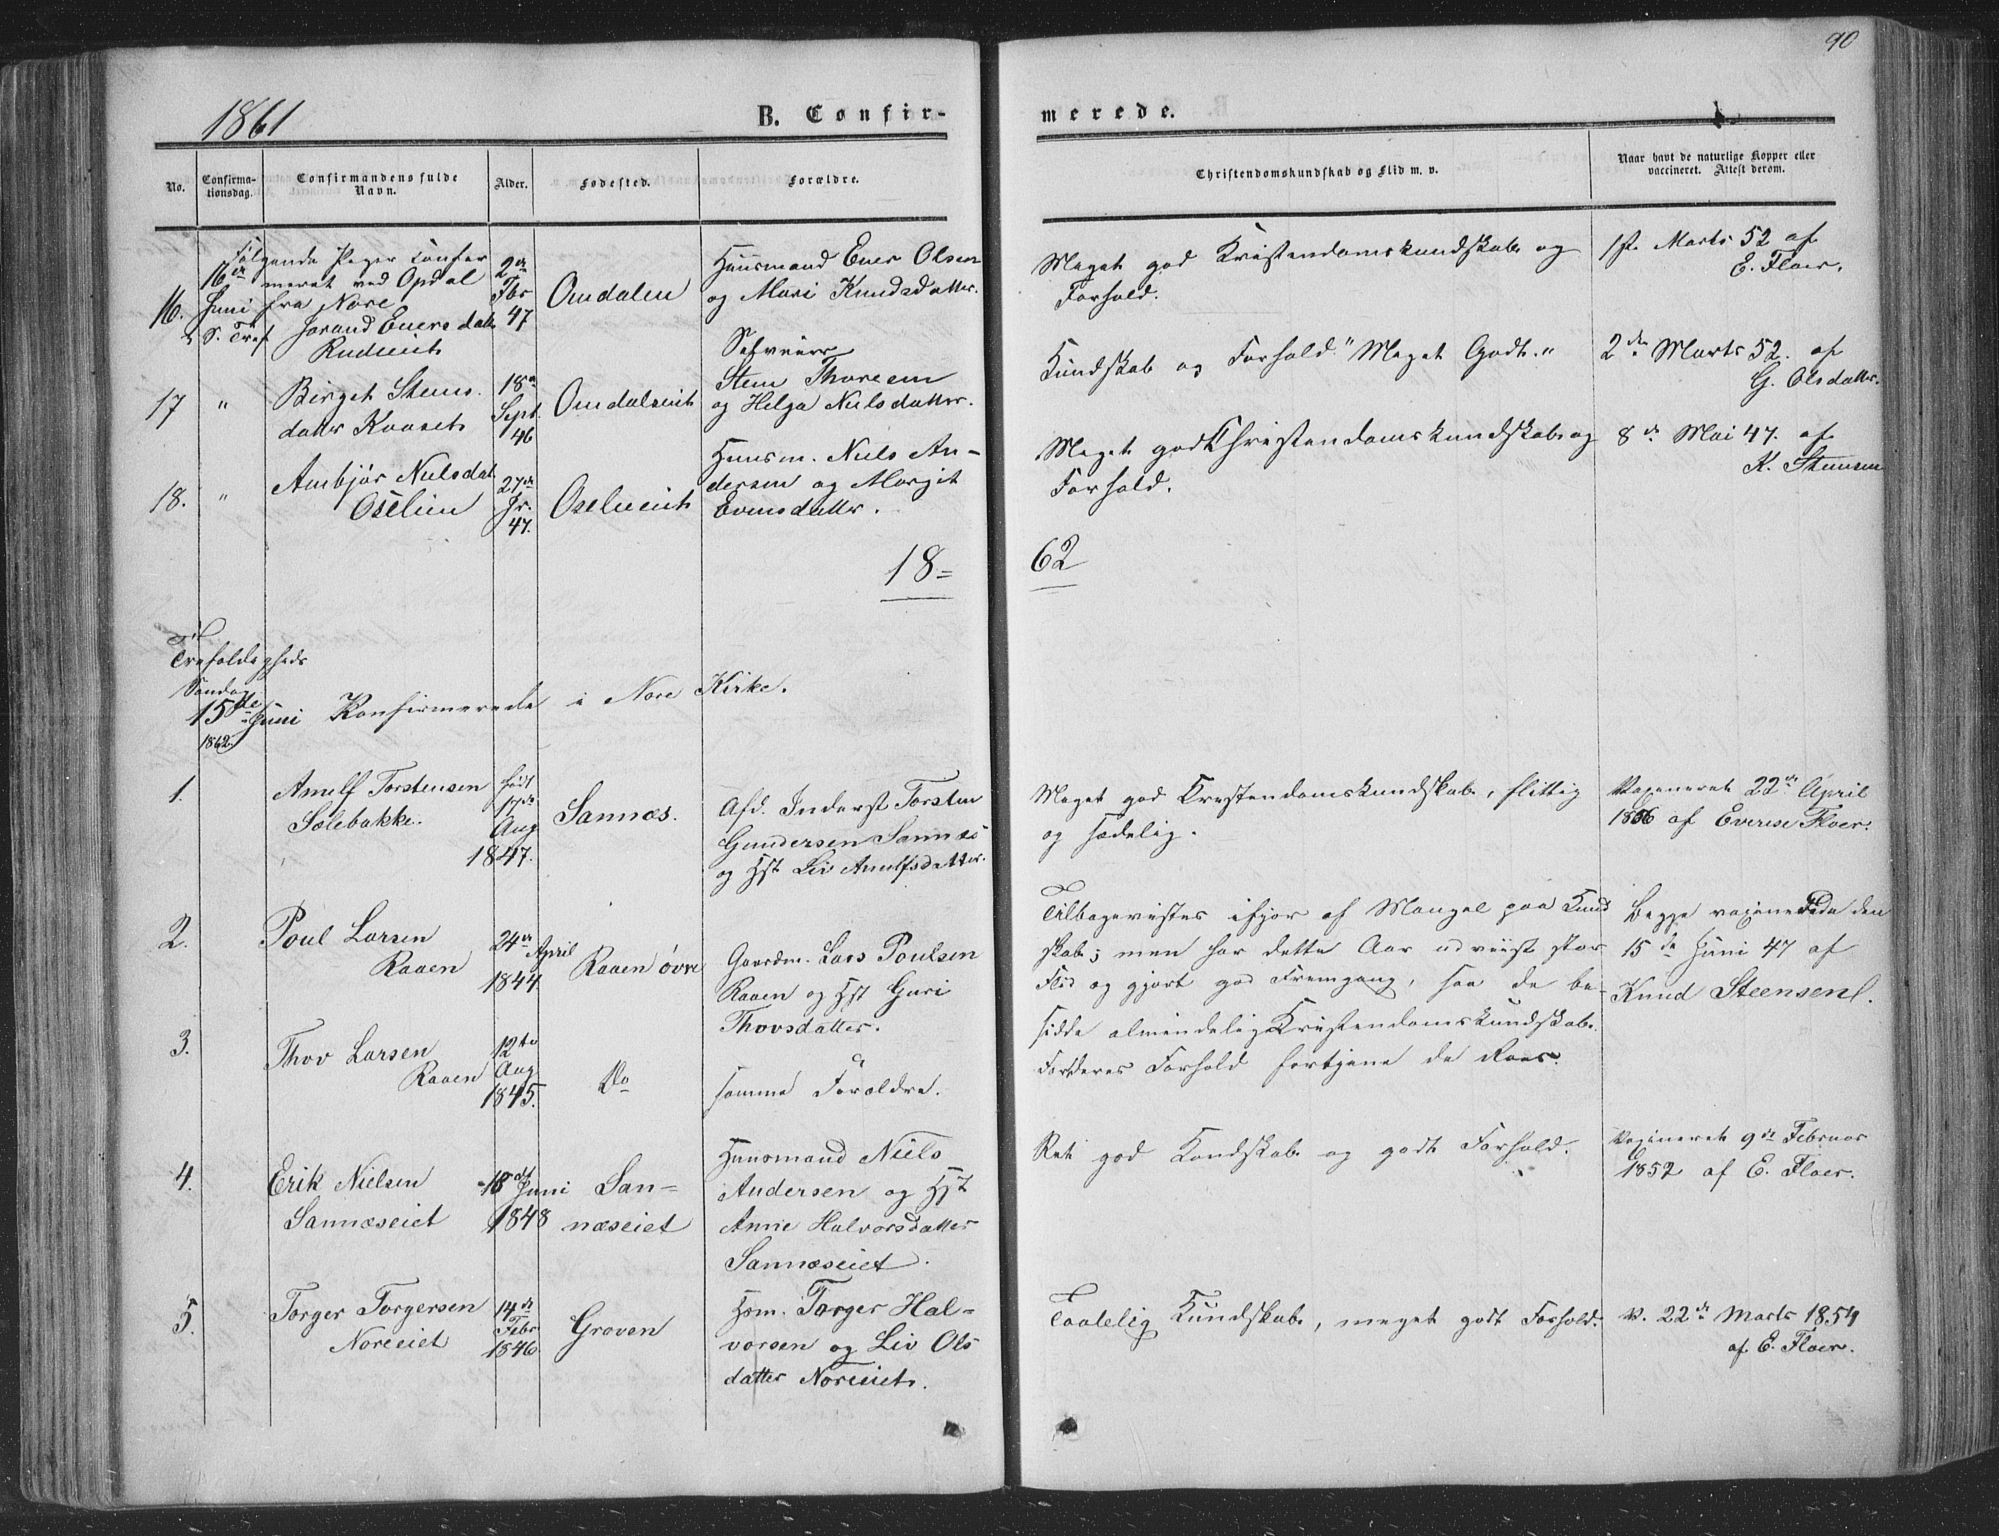 90
1861
B. Confir-
merede.
No.
Confirma-
tionsdag.
Confirmandens fulde
Navn.
Alder.
Fødested.
Forældre.
Christendomskundskab og Flid m. v.
Naar havt de naturlige Kopper eller
vaccineret. Attest derom.
Følgende Piger confir
meret ved Opdal
fra Nore
16.
16de
Juni
S. Tref
Jorand Evers datt
Rudieiet
2den
Fbr
47
Omdalen
Huusmand Ever Olsen
og Mari Knudsdatter.
Meget god Kristendomskundskab og
Forhold.
1st. Marts 52 af
E. Floer.
17
"
Birget Steens
datter Kaaset
18de
Sept.
46
Omdalseiet
Selveier
Steen Thoresen
og Helga Nielsdatter.
Kundskab og Forhold "Meget Godt."
2den Marts 52. af
G. Olsdatter.
18.
"
Ambjør Nielsdat.
Oselien
27de
Jr.
47.
Oselieeiet
Huusm. Niels An-
dersen og Margit
Evensdatter.
Meget god Christendomskundskab og
Forhold.
8de Mai 47. af
K. Steensen
18=
62
Trefoldigheds
Søndag
15de Juni
1862.
Konfirmerede i Nore Kirke.
1.
Arnulf Torstensen
Solebakke.
født
17de
Aug
1847.
Sannæs.
Afd. Inderst Torsten
Gundersen Sannæs
og Hst Liv Arnulfsdatter.
Meget god Kristendomskundskab, flittig
og sædelig.
Vaxineret 22de April
1856 af Everese Floer.
2.
Poul Larsen
Raaen
24de
April
1844.
Raaen øvre
Gaardm. Lars Poulsen
Raaen og Hst Guri
Thovsdatter.
Tilbagevistes ifjor af Mangel paa Kund
skab; men har dette Aar udviist stor
Flid og gjort god Fremgang, saa de be-
sidde almindelig Kristendomskundskab.
For deres Forhold fortjene de Roes.
Begge vaxinerede den
15de Juni 47 af
Knud Steensen.
3.
Thov Larsen
Raaen
12te
Aug
1845.
Do
samme Forældre.
4.
Erik Nielsen
Sannæseiet
18de Juni
1848
San=
næseiet
Huusmand Niels
Andersen og Hst
Anne Halvorsdatter
Sannæseiet.
Ret god Kundskab og godt Forhold.
Vaxineret 9de Februar
1852 af E. Floer.
5.
Torger Torgersen
Noreeiet
14de
Febr
1846
Groven
Hsm. Torger Hal=
vorsen og Liv Ols
datter Noreeiet.
Taalelig Kundskab, meget godt Forhold.
V. 22de Marts 1854
af E. Floer.